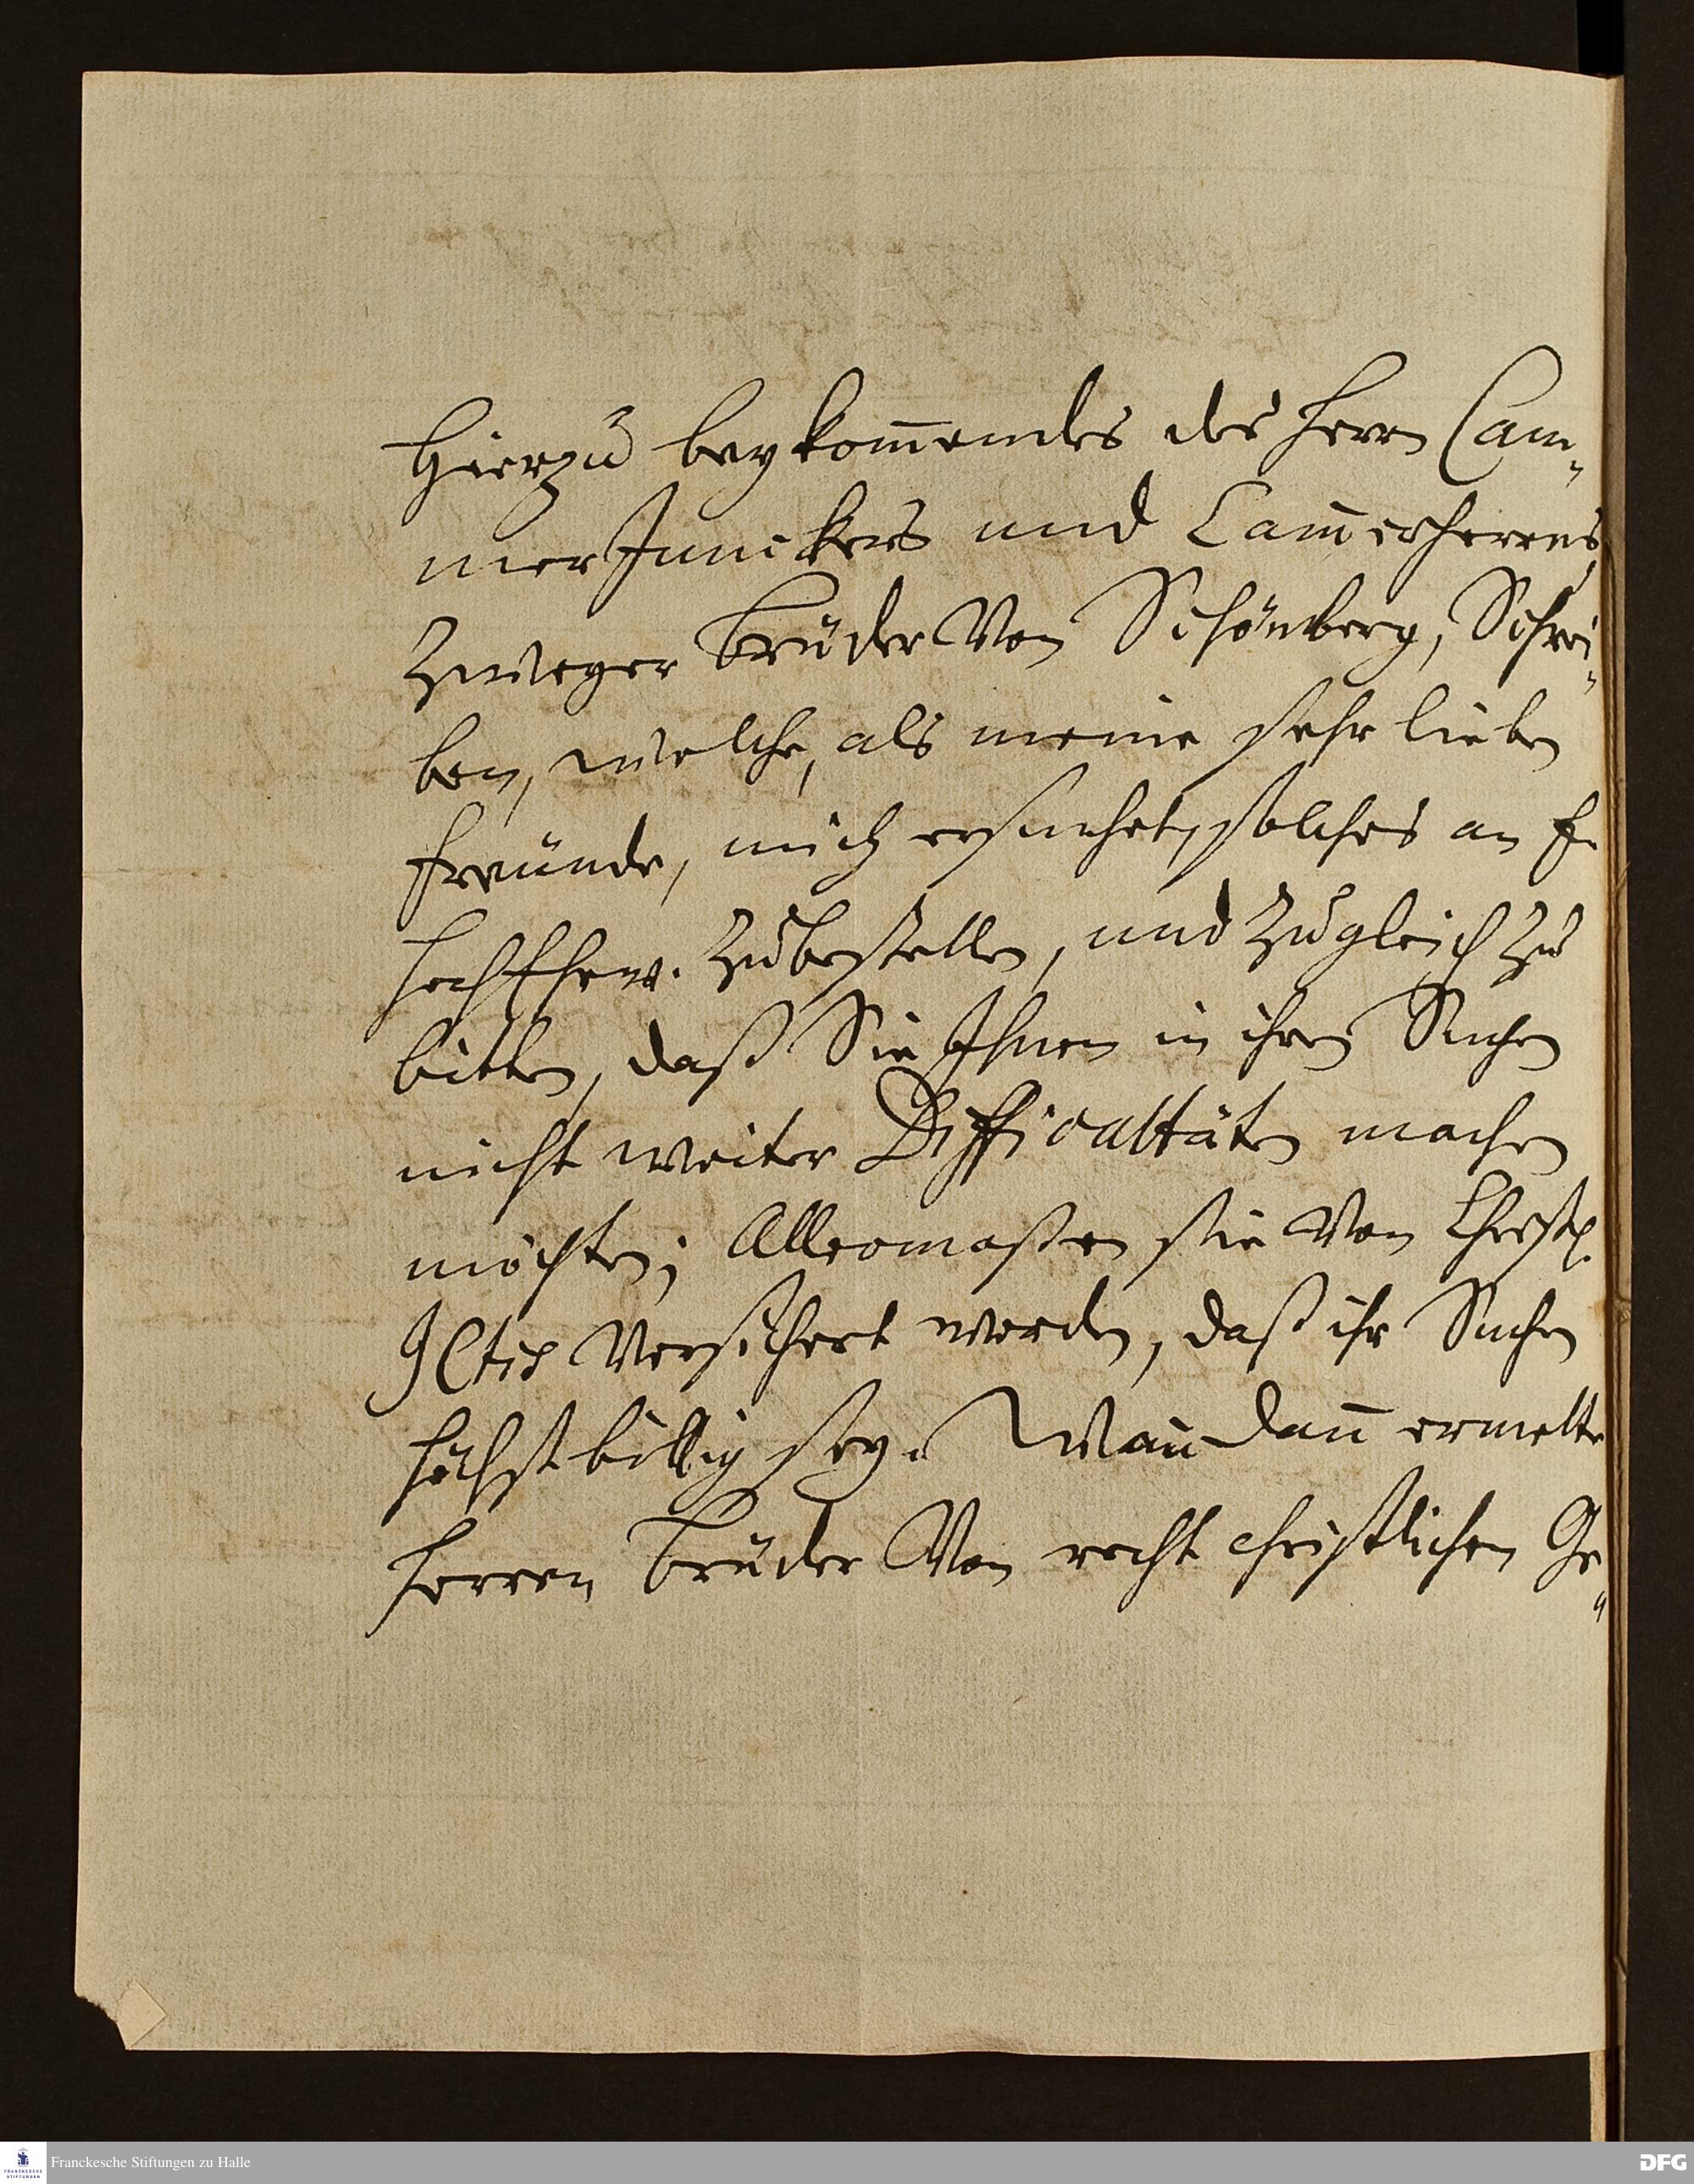 Hierzu beykom̄endes des Herrn Cam-
mer Junckers und Cam̄erherrens,
Zweyer Brüder Von Schönberg, Schrei-
ben, welche, als meine sehr lieben
Freünde, mich ersuchet, solches an E.
HochEhrw. Zubestellen, und Zugleich Zu
bitten, daß Sie Ihnen in ihren Suchen
nicht weiter Difficultäten machen
möchten; Allermaßen sie Von Christ.
Versichert werden, daß ihr Suchen
höchst billig sey. Wan̄ dan̄ ermelte
Herren Brüder Von recht christlichen Ge-
Franckesche Stiftungen zu Halle
DFG